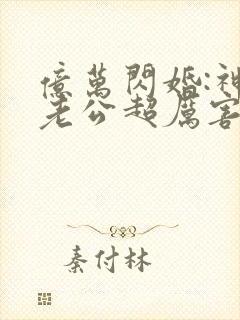 億萬閃婚:神
老公超厲害
秦付林